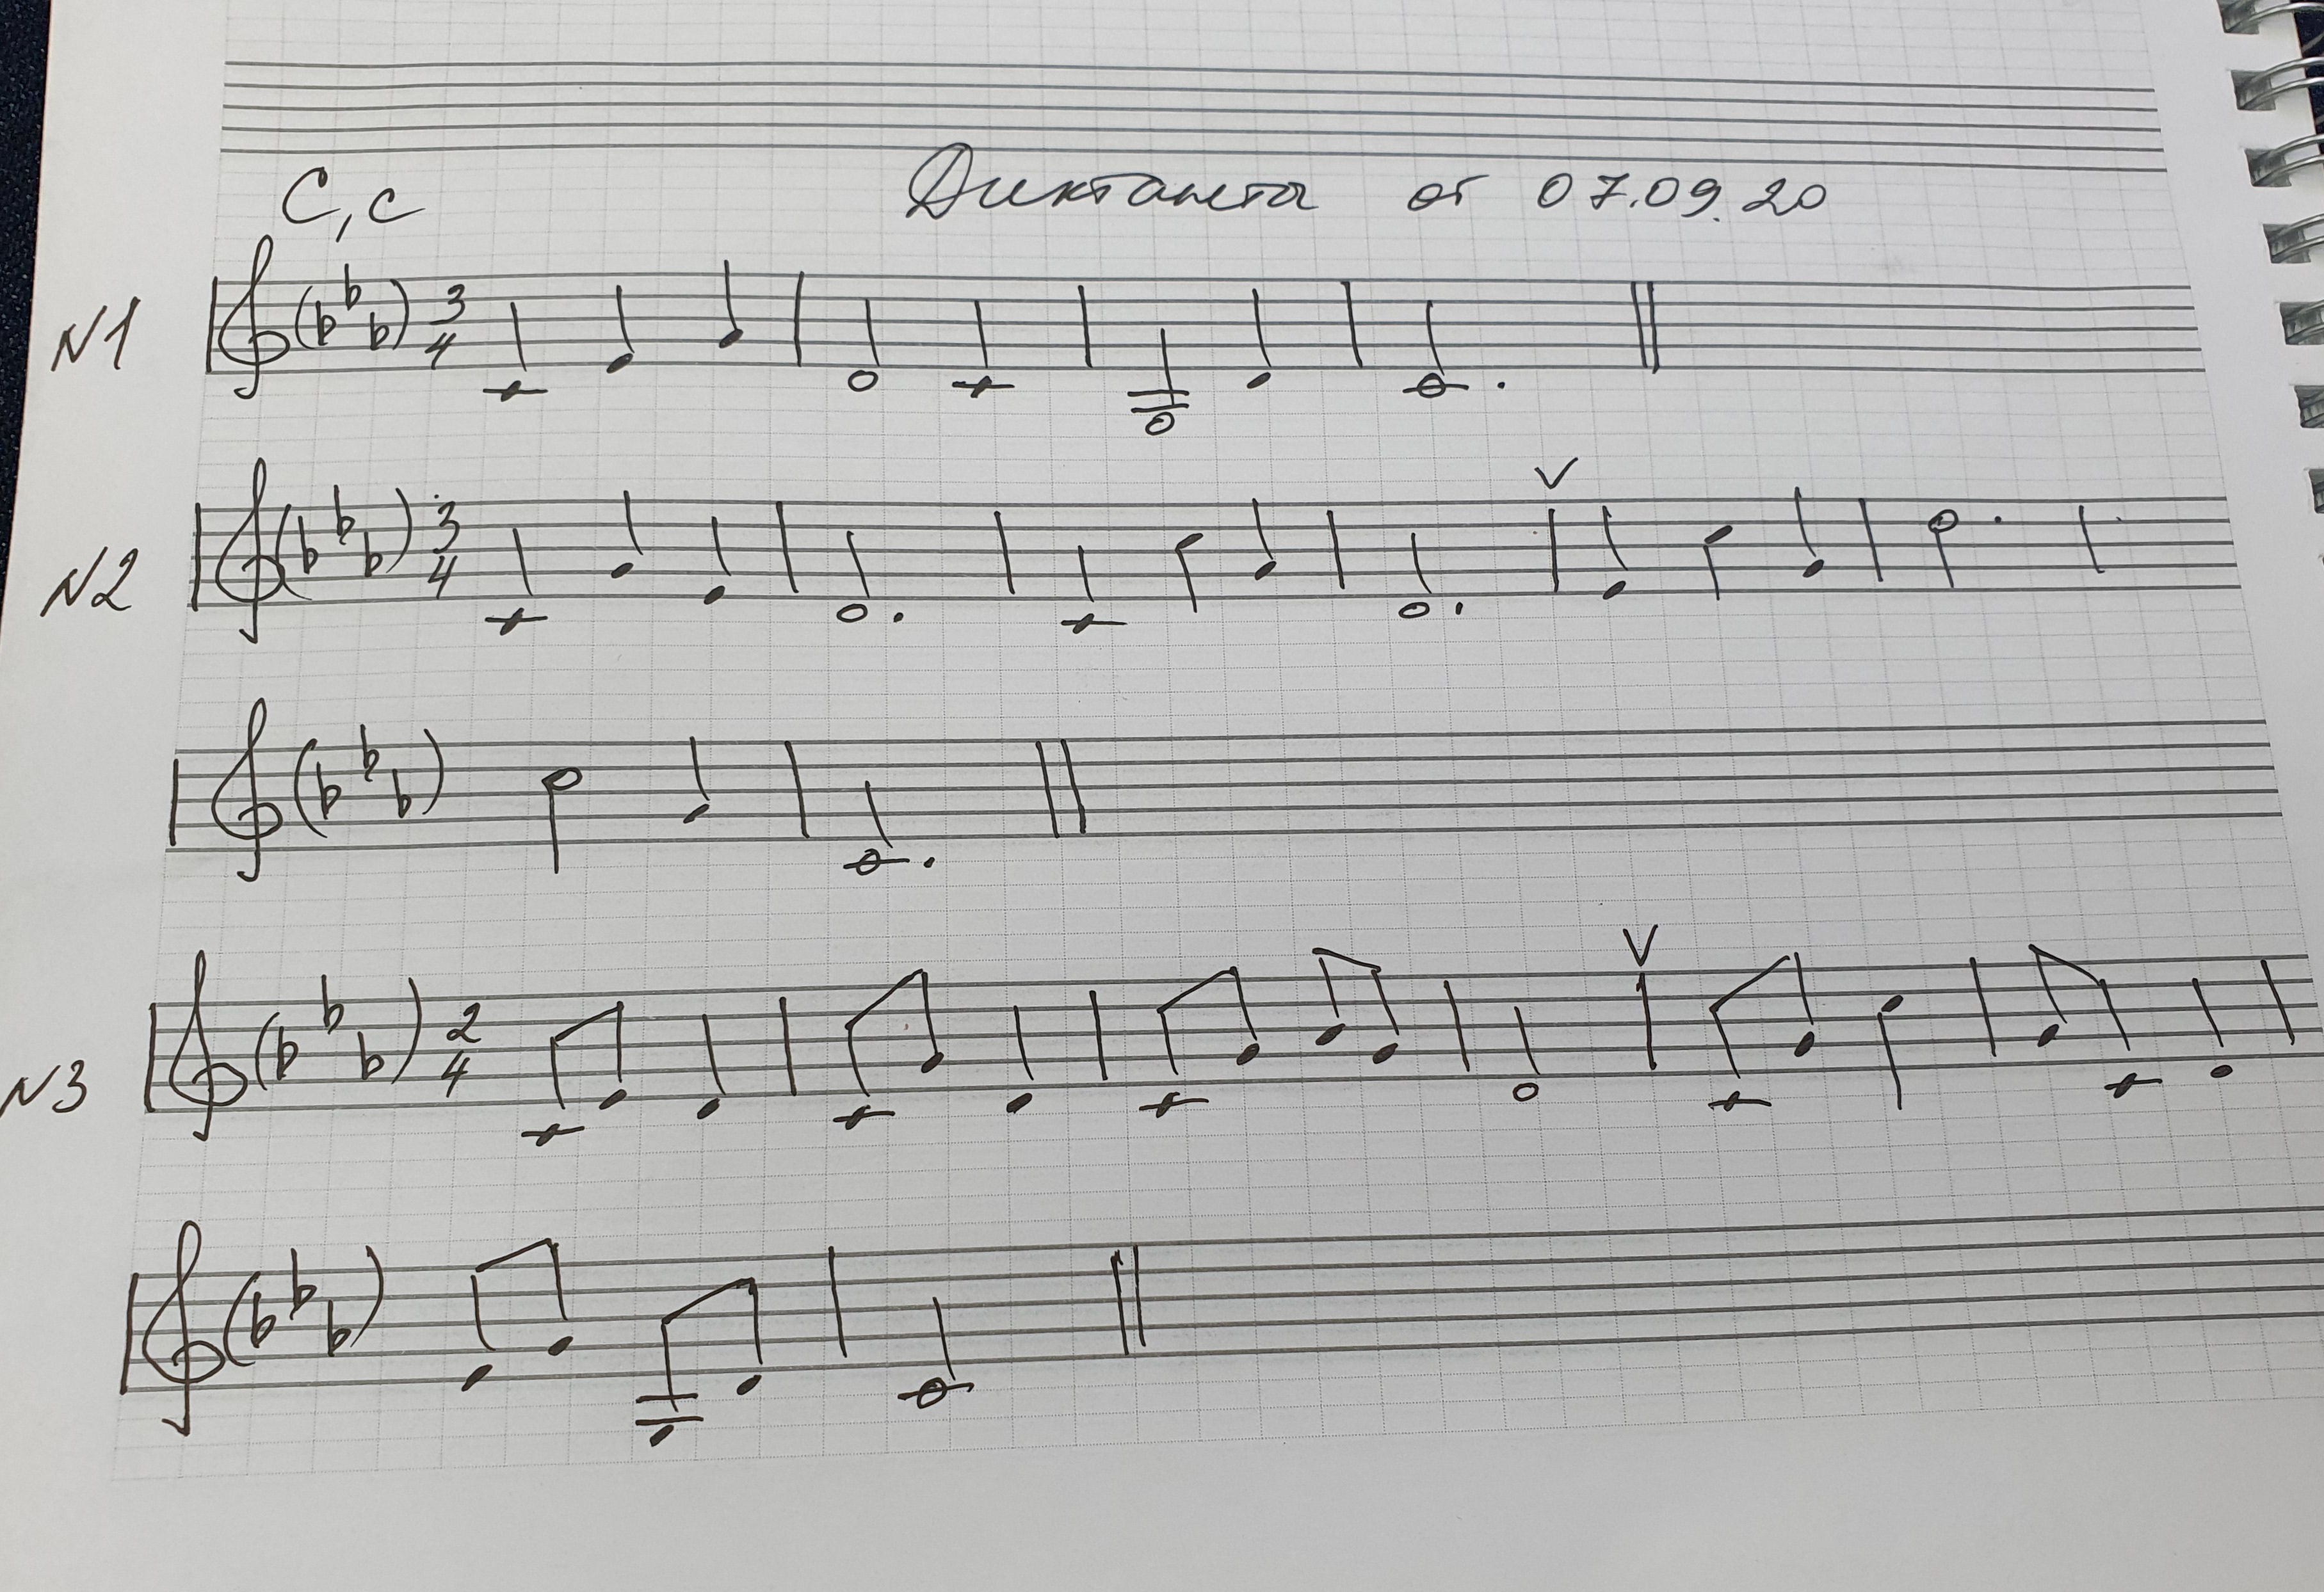 C, c Диктанты от 07.09.20
N1 3 4
N2 3 4
N3 2 4